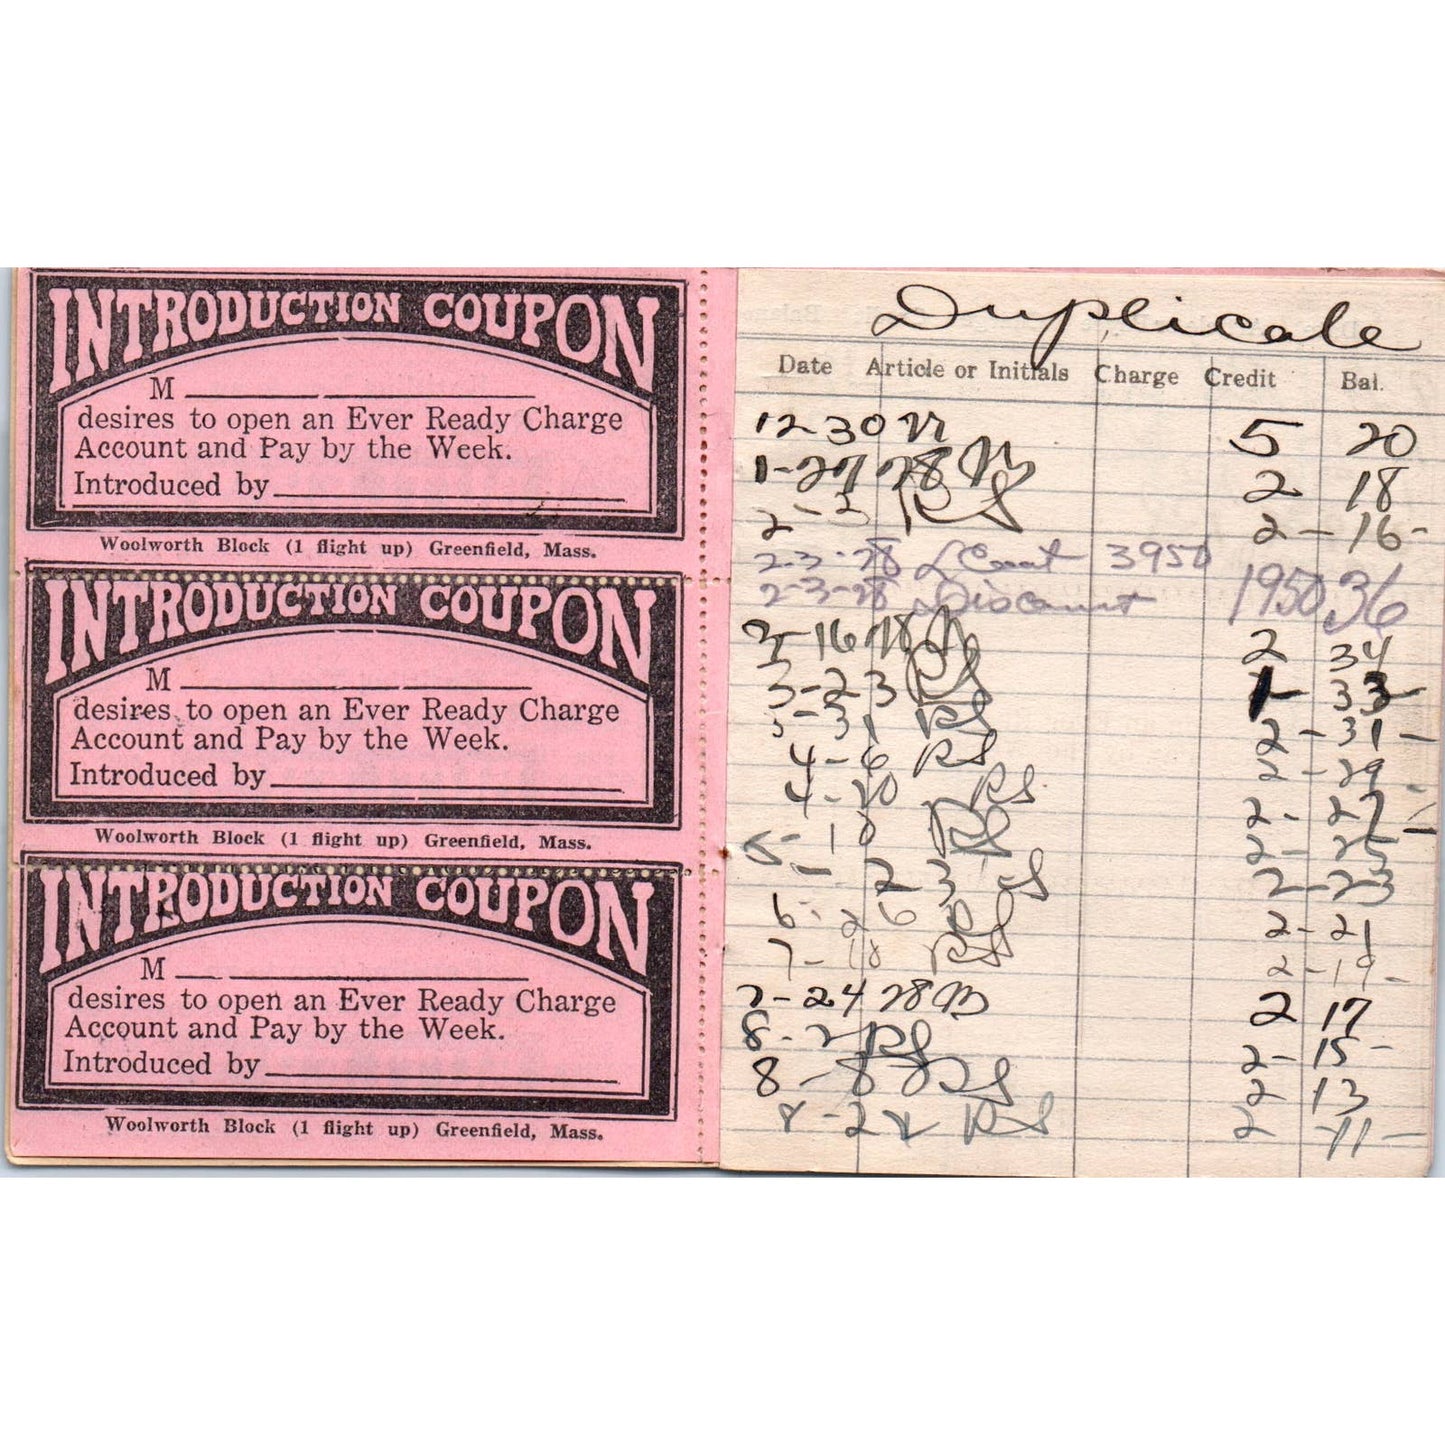 INTRODUCTION COUPON
M
desires to open an Ever Ready Charge
Account and Pay by the Week.
Introduced by
Woolworth Block (1 flight up) Greenfield, Mass.
INTRODUCTION COUPON
M
desires to open an Ever Ready Charge
Account and Pay by the Week.
Introduced by
Woolworth Block (1 flight up) Greenfield, Mass.
INTRODUCTION COUPON
M
desires to open an Ever Ready Charge
Account and Pay by the Week.
Introduced by
Woolworth Block (1 flight up) Greenfield, Mass.
Duplicate
Date Article or Initials Charge Credit Bal.
12-30 5 20
1-27 28 2 18
2-3 RS 2-16-
2-3-28 L Coat 3950
2-3-28 Discount 1950 36
3-16 28 2 34
3-23 RS 1-33-
3-31 RS 2-31-
4-6 RS 2-29
4-20 RS 2-27-
5-10 RS 2-25
5-23 RS 2-23
6-26 RS 2-21
7-10 RS 2-19-
7-24 28 2 17
8-2 RS 2-15-
8-8 RS 2 13
8-22 RS 2-11-